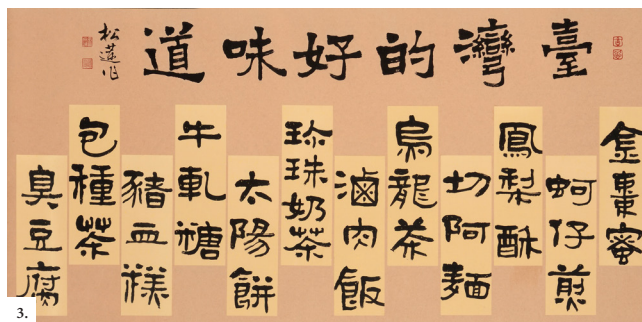 臺灣的好味道
松蓮作
金棗蜜
蚵仔煎
鳳梨酥
切阿麵
烏龍茶
滷肉飯
珍珠奶茶
太陽餅
牛軋糖
豬血糕
包種茶
臭豆腐
3.